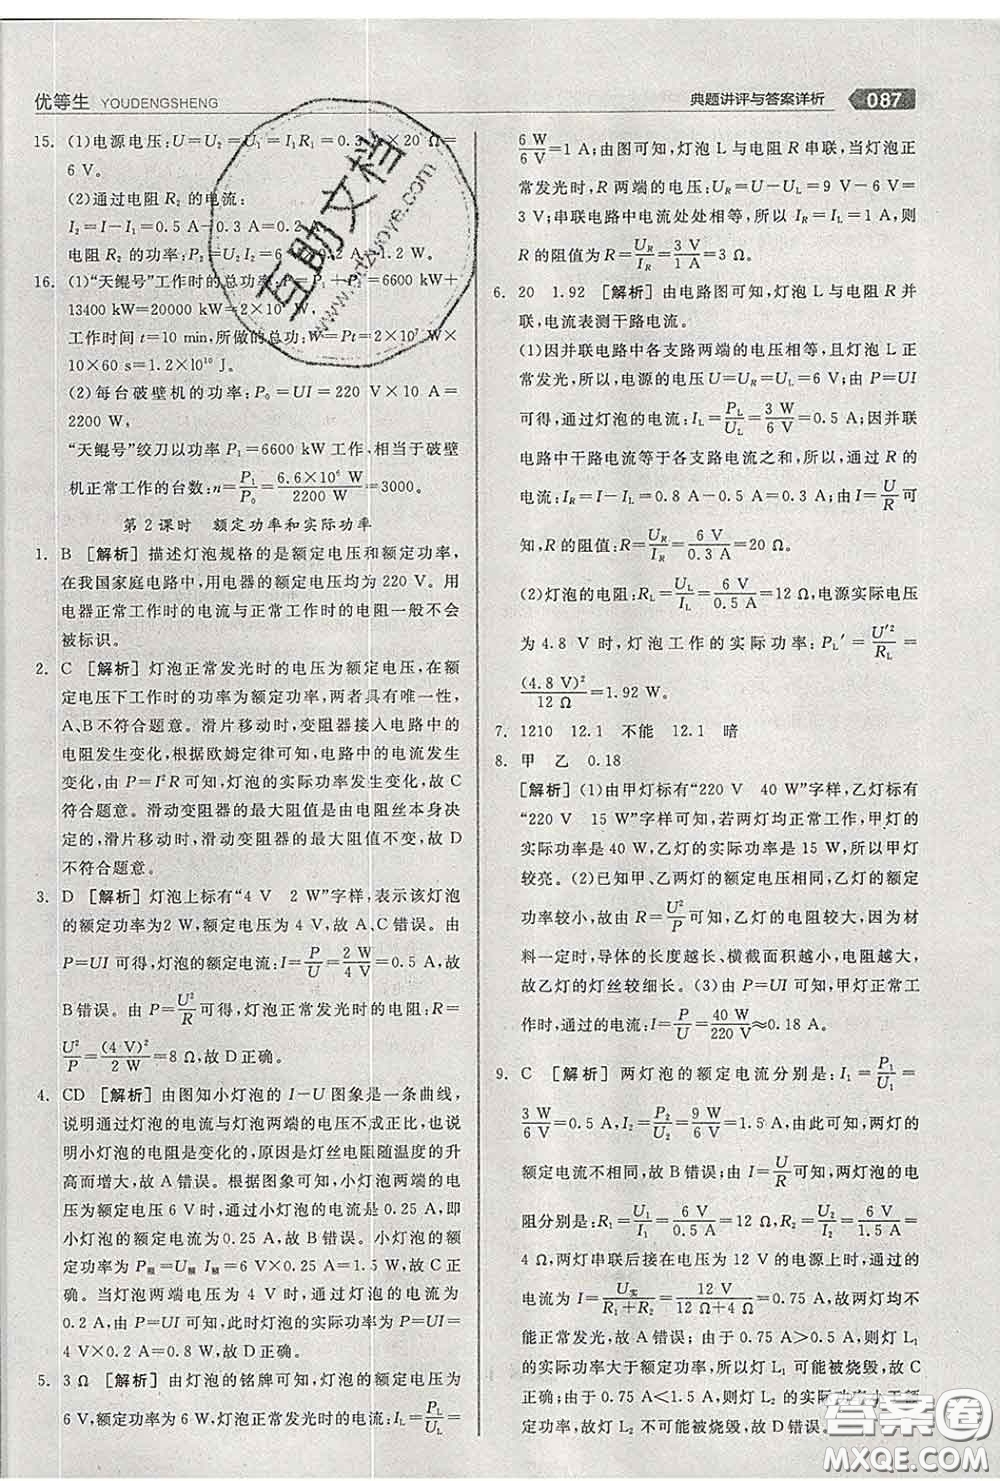 优等生 YOUDENGSHENG
典题讲评与答案详析 087
15. (1)电源电压:U=U₂=U₁=I₁R₁=0.3 A×20 Ω=
6 V。
(2)通过电阻 R₂ 的电流:
I₂=I-I₁=0.5 A-0.3 A=0.2 A,
电阻 R₂ 的功率:P₂=U₂I₂=6 V×0.2 A=1.2 W。
16. (1)“天鲲号”工作时的总功率:P=P₁+P₂=6600 kW+
13400 kW=20000 kW=2×10⁷ W,
工作时间 t=10 min,所做的总功:W=Pt=2×10⁷ W
×10×60 s=1.2×10¹⁰ J。
(2)每台破壁机的功率:P₀=UI=220 V×10 A=
2200 W,
“天鲲号”绞刀以功率 P₁=6600 kW 工作,相当于破壁
机正常工作的台数:n=P₁/P₀=6.6×10⁶ W/2200 W=3000。
第 2 课时 额定功率和实际功率
1. B [解析] 描述灯泡规格的是额定电压和额定功率,
在我国家庭电路中,用电器的额定电压均为 220 V。用
电器正常工作时的电流与正常工作时的电阻一般不会
被标识。
2. C [解析] 灯泡正常发光时的电压为额定电压,在额
定电压下工作时的功率为额定功率,两者具有唯一性,
A、B不符合题意。滑片移动时,变阻器接入电路中的
电阻发生变化,根据欧姆定律可知,电路中的电流发生
变化,由 P=I²R 可知,灯泡的实际功率发生变化,故 C
符合题意。滑动变阻器的最大阻值是由电阻丝本身决
定的,滑片移动时,滑动变阻器的最大阻值不变,故 D
不符合题意。
3. D [解析] 灯泡上标有“4 V 2 W”字样,表示该灯泡
的额定功率为2 W,额定电压为 4 V,故 A、C错误。由
P=UI 可得,灯泡的额定电流:I=P/U=2 W/4 V=0.5 A,故
B错误。由 P=U²/R 可得,灯泡正常发光时的电阻:R=
U²/P=(4 V)²/2 W=8 Ω,故 D正确。
4. CD [解析] 由图知小灯泡的 I-U 图象是一条曲线,
说明通过灯泡的电流与灯泡两端的电压不成正比,也说
明小灯泡的电阻是变化的,原因是灯丝电阻随温度的升
高而增大,故 A、B错误。根据图象可知,小灯泡两端的电
压为额定电压 6 V 时,通过小灯泡的电流是 0.25 A,即
小灯泡的额定电流是 0.25 A。小灯泡的额定功率:
P额=U额 I额=6 V×0.25 A=1.5 W,故C正确。
当灯泡两端电压为 4 V 时,通过灯泡的电流为
0.2 A,由 P=UI 可知,此时灯泡的实际功率:P=UI=
4 V×0.2 A=0.8 W,故 D正确。
5. 3 Ω [解析] 由灯泡的铭牌可知,灯泡的额定电压为
6 V,额定功率为 6 W,则灯泡的额定电流:I_L=P_L/U_L=
6 W/6 V=1 A;由图可知,灯泡 L 与电阻 R 串联,当灯泡正
常发光时,R 两端的电压:U_R=U-U_L=9 V-6 V=
3 V;串联电路中电流处处相等,所以 I_R=I_L=1 A,则
R 的阻值为 R=U_R/I_R=3 V/1 A=3 Ω。
6. 20 1.92 [解析] 由电路图可知,灯泡 L与电阻 R 并
联,电流表测干路电流。
(1)因并联电路中各支路两端的电压相等,且灯泡正
常发光,所以,电源的电压 U=U_R=U_L=6 V;由 P=UI
可得,通过灯泡的电流:I_L=P_L/U_L=3 W/6 V=0.5 A;因并联
电路中干路电流等于各支路电流之和,所以,通过R 的
电流:I_R=I-I_L=0.8 A-0.5 A=0.3 A,由 I=U/R 可
知,R 的阻值:R=U_R/I_R=6 V/0.3 A=20 Ω。
(2)灯泡的电阻:R_L=U_L/I_L=6 V/0.5 A=12 Ω,电源实际电压
为 4.8 V 时,灯泡工作的实际功率:P_L′=U′²/R_L=
(4.8 V)²/12 Ω=1.92 W。
7. 1210 12.1 不能 12.1 暗
8. 甲 乙 0.18
[解析] (1)由甲灯标有“220 V 40 W”字样,乙灯标有
“220 V 15 W”字样可知,若两灯均正常工作,甲灯的
实际功率是 40 W,乙灯的实际功率是 15 W,所以甲灯
较亮。(2)已知甲、乙两灯的额定电压相同,甲灯的额定
功率较大,由 R=U²/P 可知,乙灯的电阻较大,因为材
料一定时,导体的长度越长、横截面积越小,电阻越大,
故乙灯的灯丝较细长。(3)由 P=UI 可知,甲灯正常工
作时,通过的电流:I=P/U=40 W/220 V≈0.18 A。
9. C [解析] 两灯泡的额定电流分别是:I₁=P₁/U₁=
3 W/6 V=0.5 A,I₂=P₂/U₂=9 W/6 V=1.5 A,两灯泡的
额定电流不相同,故 B错误;由 I=U/R 可知,两灯泡的电
阻分别是:R₁=U₁/I₁=6 V/0.5 A=12 Ω,R₂=U₂/I₂=6 V/1.5 A=
4 Ω,两灯串联后接在电压为 12 V 的电源两端时
的电流为 I=U实/(R₁+R₂)=12 V/(12 Ω+4 Ω)=0.75 A,故两灯均不
能正常发光,故 A错误;由于 0.75 A>0.5 A,则灯 L₁
的实际功率大于额定功率,所以灯 L₁ 可能被烧毁,故 C正
定;由于 0.75 A<1.5 A,则灯 L₂ 的实际功率小于额
定功率,故灯 L₂ 不可能被烧毁,故 D错误。
互助文档
www.mzuoye.com
答案圈
MXQE.COM